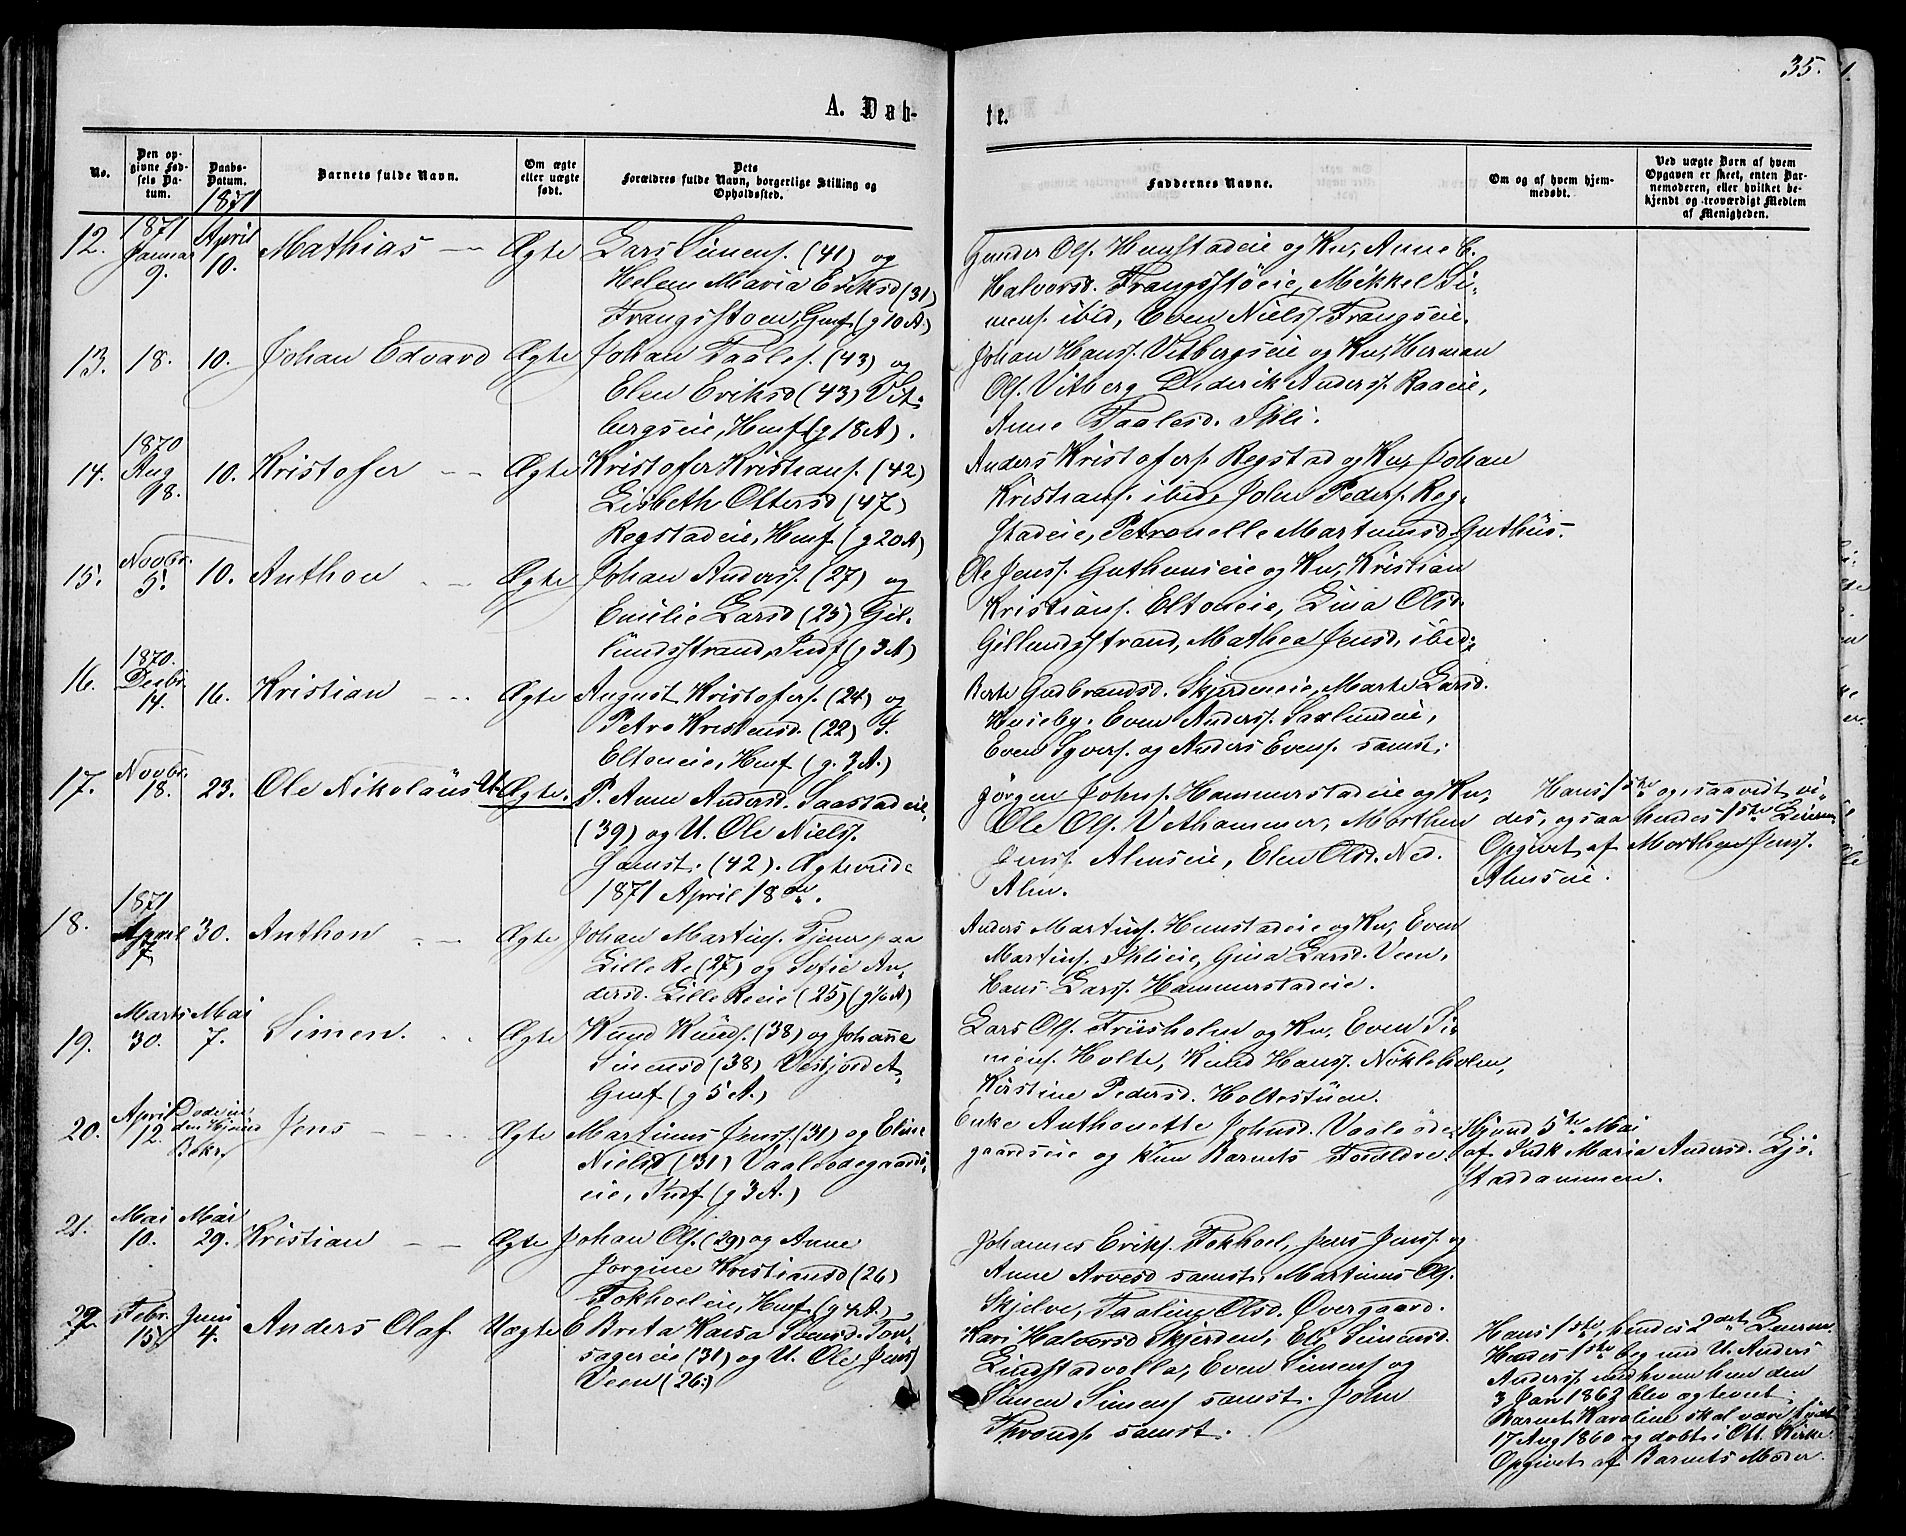 35.
A. Døb-
te.
No.
Den op-
givne Fød-
sels Da-
tum.
Daabs-
Datum.
1871
Barnets fulde Navn.
Om ægte
eller uægte
født.
Dets
Forældres fulde Navn, borgerlige Stilling og
Opholdssted.
Faddernes Navne.
Om og af hvem hjem-
medøbt.
Ved uægte Børn af hvem
Opgaven er skeet, enten Bar-
nemoderen, eller hvilket be-
kjendt og troværdigt Medlem
af Menigheden.
12.
1871
Januar
9.
April
10.
Mathias
Ægte
Lars Simens. (41) og
Helene Maria Eriksd (31)
Frangsstøen, (g 10 A)
Gunder Ols. Hemstadeie og Kv, Anne C.
Halvorsd. Frangsstøeie, Mikkel Si-
mens. ibid, Even Niels. Frangseie.
13.
18.
10.
Johan Edvard
Ægte
Johan Taales. (43) og
Elen Eriksd (43) Vit-
bergseie, Hmf (g 18 A).
Johan Hans. Vitbergseie og Kv, Herman
Ols. Vitberg Diderik Anders. Raaeie,
Anne Taalesd. Skli.
14.
1870
Aug
18.
10.
Kristofer
Ægte
Kristofer Kristians. (42)
Lisbeth Ottersd (47)
Regstadeie, Hmf (g 20 A)
Anders Kristofers. Regstad og Kv, Johan
Kristians. ibid, John Peders. Reg-
stadeie, Petronelle Martinusd. Guthus.
15.
Novbr.
5.
10.
Anthon
Ægte
Johan Anders. (27) og
Emilie Larsd (25) Gil-
lundsstrand, Indf (g 3 A)
Ole Jens. Guthuuseie og Kv, Kristian
Kristians. Eltoneie, Lina Olsd.
Gillundsstrand, Mathea Jensd. ibid;
16.
1870.
Decbr.
14.
16.
Kristian
Ægte
August Kristofers. (24) og
Petra Kristensd. (22)
Eltoneie, Hmf (g. 3 A.)
Berte Gudbrandsd. Skjerdeneie, Marte Larsd.
Huseby. Even Anders. Saxlundeie,
Even Syvers. og Anders Evens. samst;
17.
Novbr.
18.
23.
Ole Nikolaus
U-
Ægte.
P. Anne Andersd. Saastadeie,
(39) og U. Ole Niels.
samst; (42). Ægtevied-
1871 April 18de.
Jørgen Johns. Hammerstadeie og Kv,
Ole Ols. Vethammer, Morthen
Jens. Almseie, Elen Olsd. Ned.
Alm.
Hans 1ste ogsaavidt vi-
des, ogsaa hendes 1ste Leierm.
Opgivet af Morthen Jens.
Almseie.
18.
1871
April
7
30.
Anthon
Ægte
Johan Martins. Tjener paa
Lille Re (27) og Sofie An-
dersd. Lille Reeie (25) (g ½ A)
Anders Martins. Hemstadeie og Kv, Even
Martins. Sklieie, Gina Larsd. Veen,
Hans Lars. Hammerstadeie.
19.
Marts
30.
Mai
7.
Simen.
Ægte
Knud Knuds. (38) og Johanne
Simensd (38) Vestjordet,
(g 5 A.)
Lars Ols. Friisholm og Kv, Even Si-
mens. Holte, Knud Hans. Nökleholm,
Kirstine Pedersd. Holtestuen.
20.
April
12.
Døde in-
den Hjemd
Bekr
Jens
Ægte
Martinus Jens. (31) og Eline
Nielsd (31) Vaaleødegaards-
eie, Indf (g 3 A.)
Enke Anthonette Johnsd. Vaaleøde-
gaardseie og kun Barnets Forældre.
Hjemd 5te Mai
af Indk Maria Andersd. Ljø-
staddammen.
21.
Mai
10.
Mai
29.
Kristian
Ægte
Johan Ols. (29) og Anne
Jørgine Kristiansd (26)
Fokhoeleie, Hmf (g 4 A.)
Johannes Eriks. Fokhoel, Jens Jens. og
Anne Arvesd samst, Martinus Ols.
Skjelve, Taaline Olsd. Øvergaard.
22.
Febr.
15
Juni
4.
Anders Olaf
Uægte
E Brita Kaisa Svensd. Ton-
sagereie (31) og U. Ole Jens.
Veen (26.)
Kari Halvorsd Skjerden, Eli Simensd.
Lindstadvolla, Even Simens og
Simen Simens samst. John
Thronds samst.
Hans 1ste, hendes 2det Leierm.
Hendes 1ste beg med U. Anders
Anders. med hvem hun den
3 Jan 1862 blev ægteviet;
Barnet Karoline skal være født
17 Aug 1860 og døbt i Ott. Kirke.
Opgivet af Barnets Moder.